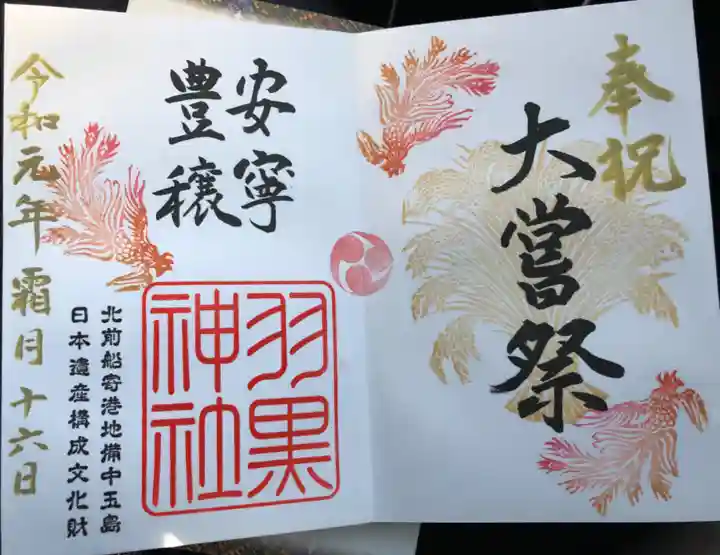 奉祝
大嘗祭
安寧
豊穣
羽黒
神社
北前船寄港地備中玉島
日本遺産構成文化財
令和元年霜月十六日